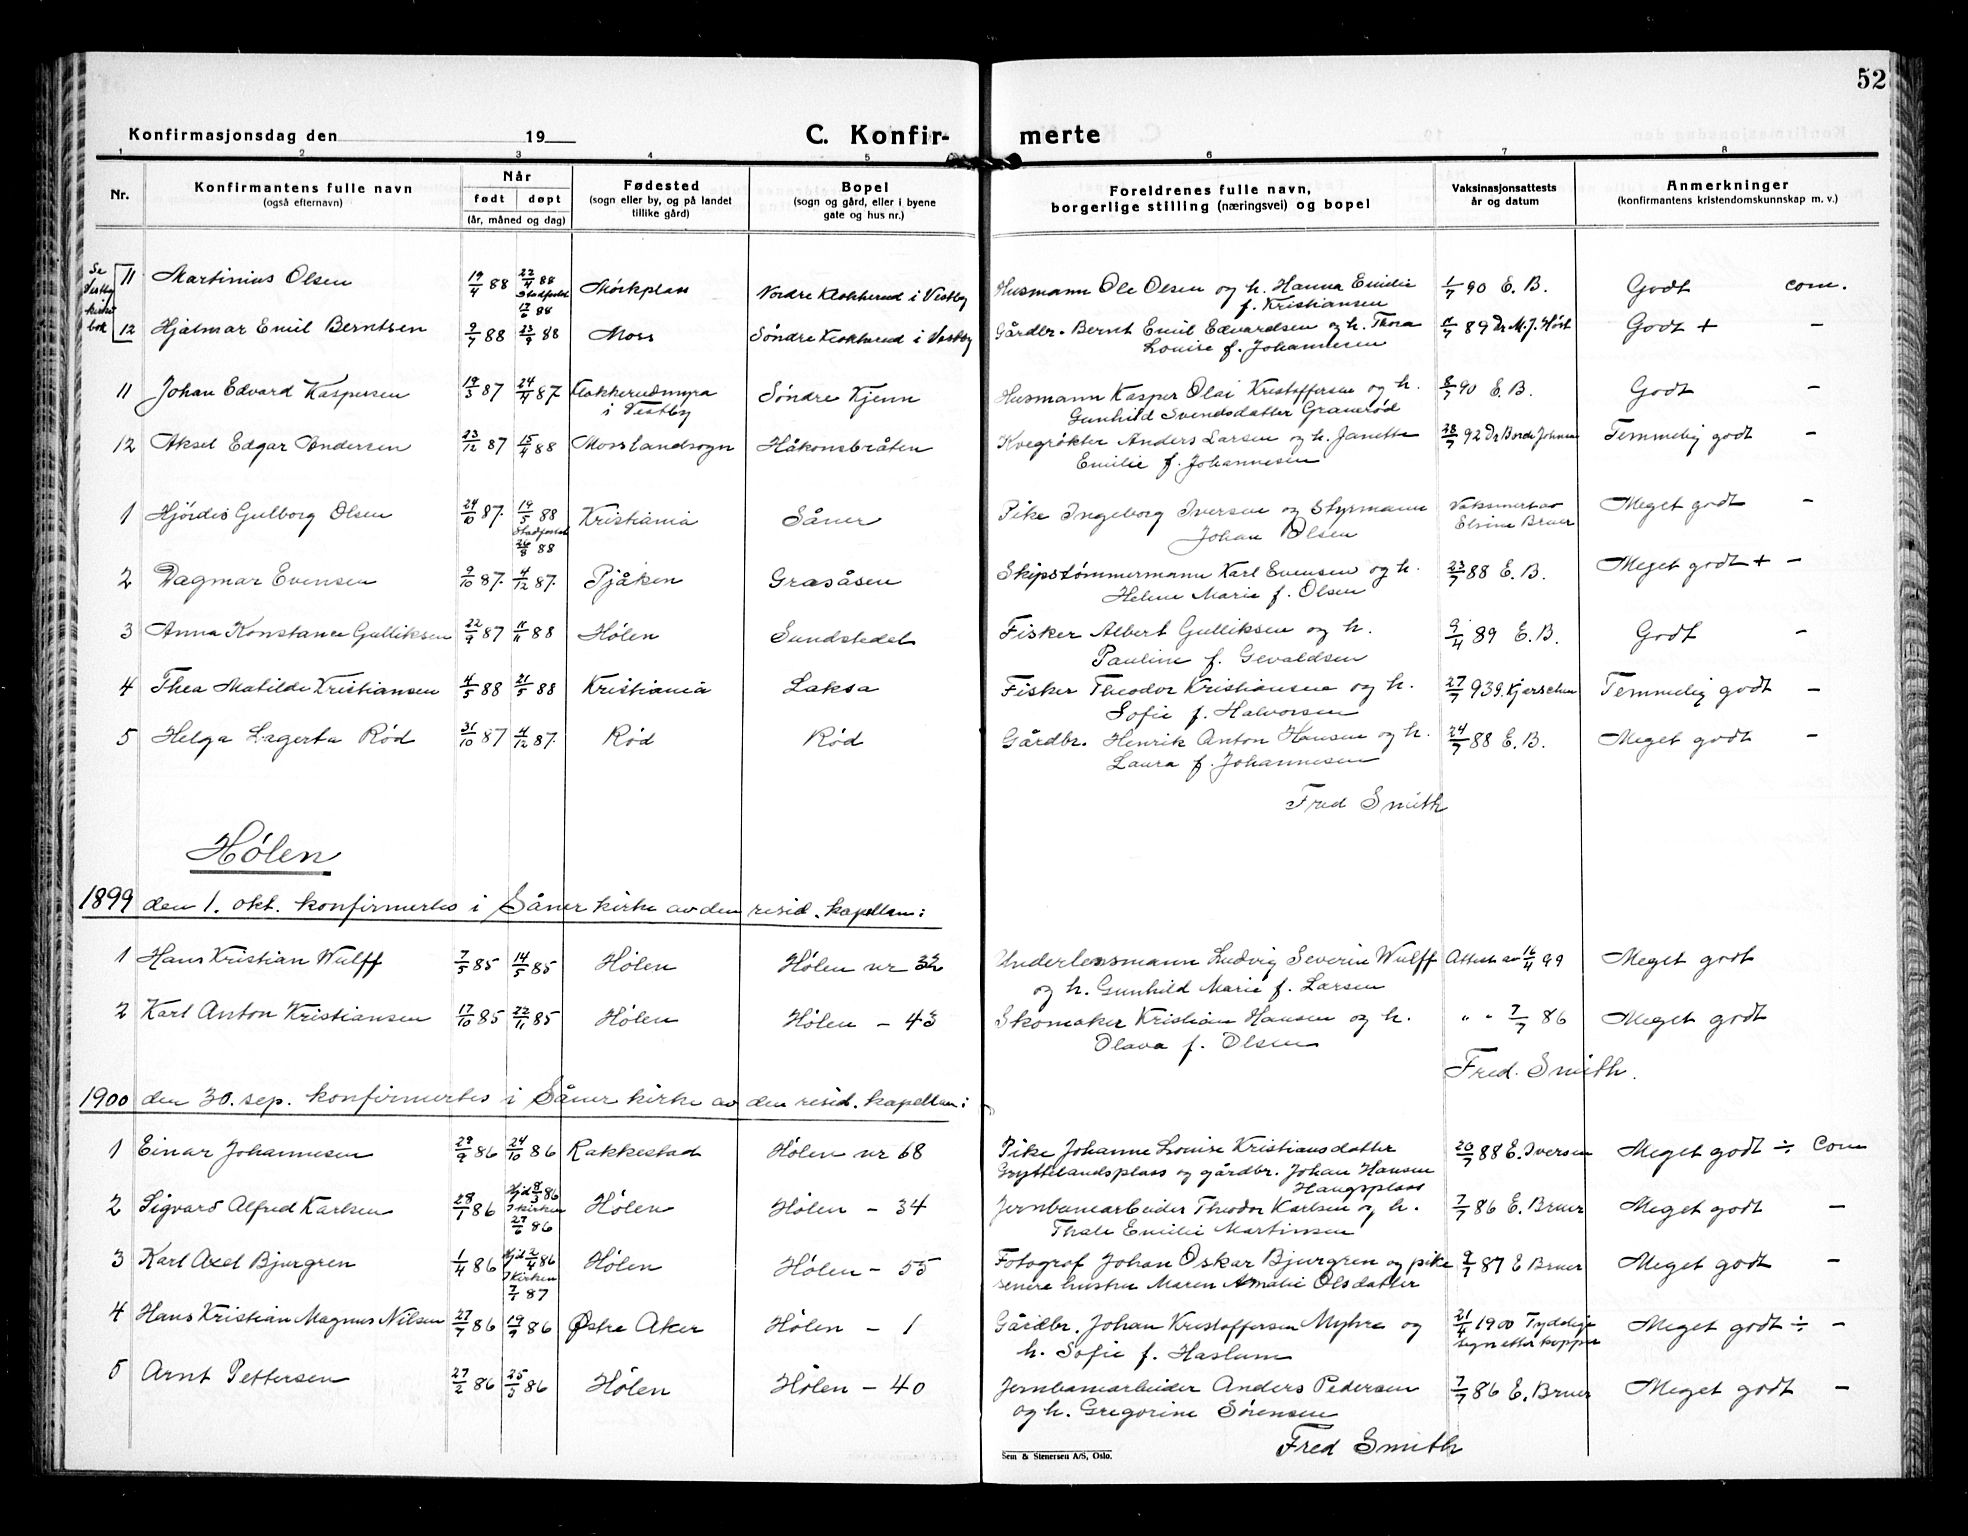 52
Konfirmasjonsdag den 19
C. Konfirmerte
1 2 3 4 5 6 7 8
Nr. Konfirmantens fulle navn (også efternavn) Når født døpt (år, måned og dag) Fødested (sogn eller by, og på landet tillike gård) Bopel (sogn og gård, eller i byene gate og hus nr.) Foreldrenes fulle navn, borgerlige stilling (næringsvei) og bopel Vaksinasjonsattests år og datum Anmerkninger (konfirmantens kristendomskunnskap m. v.)
Se Vestby kirkebok
11 Martinius Olsen 19/4 88 22/4 88 Stadfestet 17/6 88 Mörkplass Nordre Klokkerud i Vestby Husmann Ole Olsen og h. Hanna Emilie f. Kristiansen 1/7 90 E. B. Godt com.
12 Hjalmar Emil Berntsen 9/7 88 23/9 88 Moss Söndre Klokkerud i Vestby Gårdbr. Bernt Emil Edvardsen og h. Thora Louise f. Johannesen 11/7 89 Dr M. J. Höst Godt + –
11 Johan Edvard Kaspersen 19/3 87 24/4 87. Flakkerudmyra i Vestby Söndre Kjenn Husmann Kasper Olai Kristoffersen og h. Gunhild Svendsdatter Granerød 8/7 90 E. B. Godt –
12 Aksel Edgar Andersen 23/12 87 15/4 88 Moss landsogn Håkonsbråten Kvegrøkter Anders Larsen og h. Janette Emilie f. Johannesen 28/7 92 Dr Borde Johnsen Temmelig godt –
1 Hjördis Gulborg Olsen 24/10 87. 19/5 88 Stadfestet 26/8 88 Kristiania Såner Pike Ingeborg Iversen og Styrmann Johan Olsen Vaksinert av Elsine Bruer Meget godt –
2 Dagmar Evensen 9/10 87. 4/12 87. Pjåken Gråsåsen Skipstømmermann Karl Evensen og h. Helene Marie f. Olsen 23/7 88 E. B. Meget godt + –
3 Anna Konstance Gulliksen 22/9 87 11/11 88 Hölen Sundstedet Fisker Albert Gulliksen og h. Pauline f. Gevaldsen 9/4 89 E. B. Godt –
4 Thea Matilde Kristiansen 4/5 88 21/5 88 Kristiania Laksa Fisker Theodor Kristiansen og h. Sofie f. Halvorsen 27/7 93 Temmelig godt –
5 Helga Lagerta Röd 31/10 87 4/12 87. Röd Röd Gårdbr. Henrik Anton Hansen og h. Laura f. Johannesen 24/7 88 E. B. Meget godt –
Fred Smith
Hölen
1899 den 1. okt. konfirmertes i Såner kirke av den resid. kapellan:
1 Hans Kristian Wulff 7/5 85 14/5 85 Hölen Hölen nr 33 Underlensmann Ludvig Severin Wulff og h. Gunhild Marie f. Larsen Attest av 16/4 99 Meget godt
2 Karl Anton Kristiansen 17/10 85 22/11 85 Hölen Hölen – 43 Skomaker Kristian Hansen og h. Olava f. Olsen " " 7/7 86 Meget godt
Fred. Smith.
1900 den 30. sep. konfirmertes i Såner kirke av den resid. kapellan:
1 Einar Johannesen 29/9 86 24/10 86 Rakkestad Hölen nr 68 Pike Johanne Louise Kristiansdatter Gryttelandsplass og gårdbr. Johan Hansen Haugsplass 20/7 88 E. Iversen Meget godt ÷ Com
2 Sigvard Alfred Karlsen 28/1 86 Hjd 8/3 86 I kirken 27/6 86 Hölen Hölen – 34 Jernbanearbeider Theodor Karlsen og h. Thale Emilie Martinsen 7/7 86 E. Bruer Meget godt –
3 Karl Axel Bjurgren 1/4 86 Hjd 2/4 86 I kirken 7/1 87 Hölen Hölen – 55 Fotograf Johan Oskar Bjurgren og pike senere hustru Maren Amalie Olsdatter 9/7 87 E Bruer Meget godt –
4 Hans Kristian Magnus Nilsen 27/7 86 19/9 86 Østre Aker Hölen – 1 Gårdbr. Johan Kristoffersen Myhre og h. Sofie f. Haslum 21/4 1900 Tydelige tegn etter kopper Meget godt ÷ –
5 Arnt Pettersen 27/2 86 25/3 86 Hölen Hölen – 40 Jernbanearbeider Anders Pedersen og h. Gregorine Sörensen 7/7 86 E. Bruer Meget godt –
Fred Smith
Sem & Stenersen A/S, Oslo.